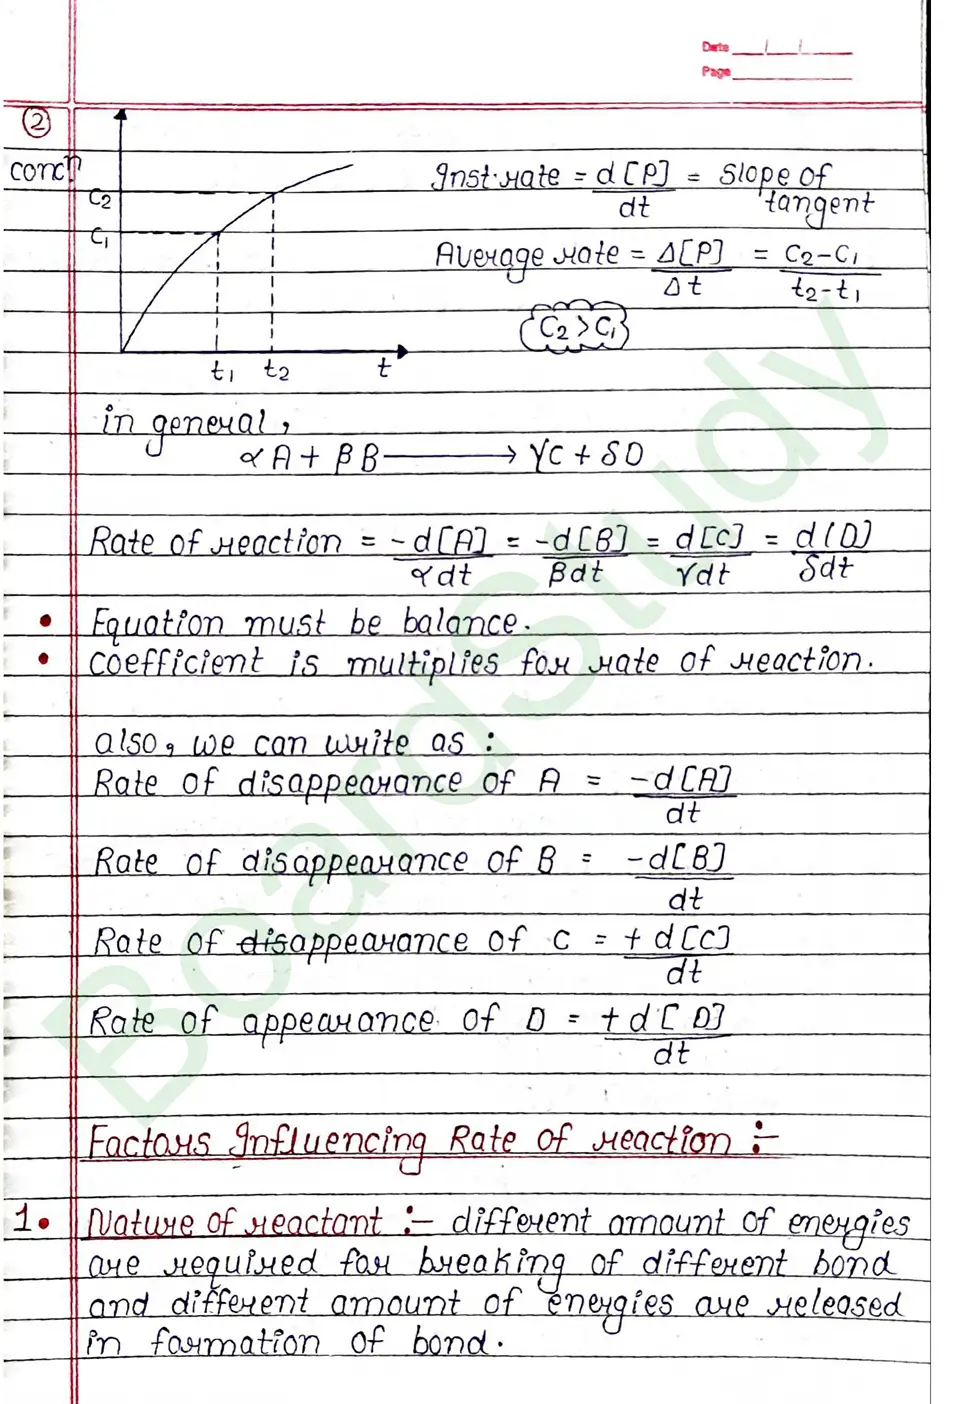 Date
Page
②
concⁿ
C₂
C₁
t₁ t₂ t
Inst. rate = d[P]/dt = Slope of tangent
Average rate = Δ[P]/Δt = C₂-C₁/t₂-t₁
C₂ > C₁
in general,
αA + βB ⟶ γC + δD
Rate of reaction = -d[A]/αdt = -d[B]/βdt = d[C]/γdt = d[D]/δdt
• Equation must be balance.
• Coefficient is multiplies for rate of reaction.
also, we can write as :
Rate of disappearance of A = -d[A]/dt
Rate of disappearance of B = -d[B]/dt
Rate of disappearance of C = + d[C]/dt
Rate of appearance of D = + d[D]/dt
Factors Influencing Rate of reaction :-
1. Nature of reactant :- different amount of energies
are required for breaking of different bond
and different amount of energies are released
in formation of bond.
BoardStudy